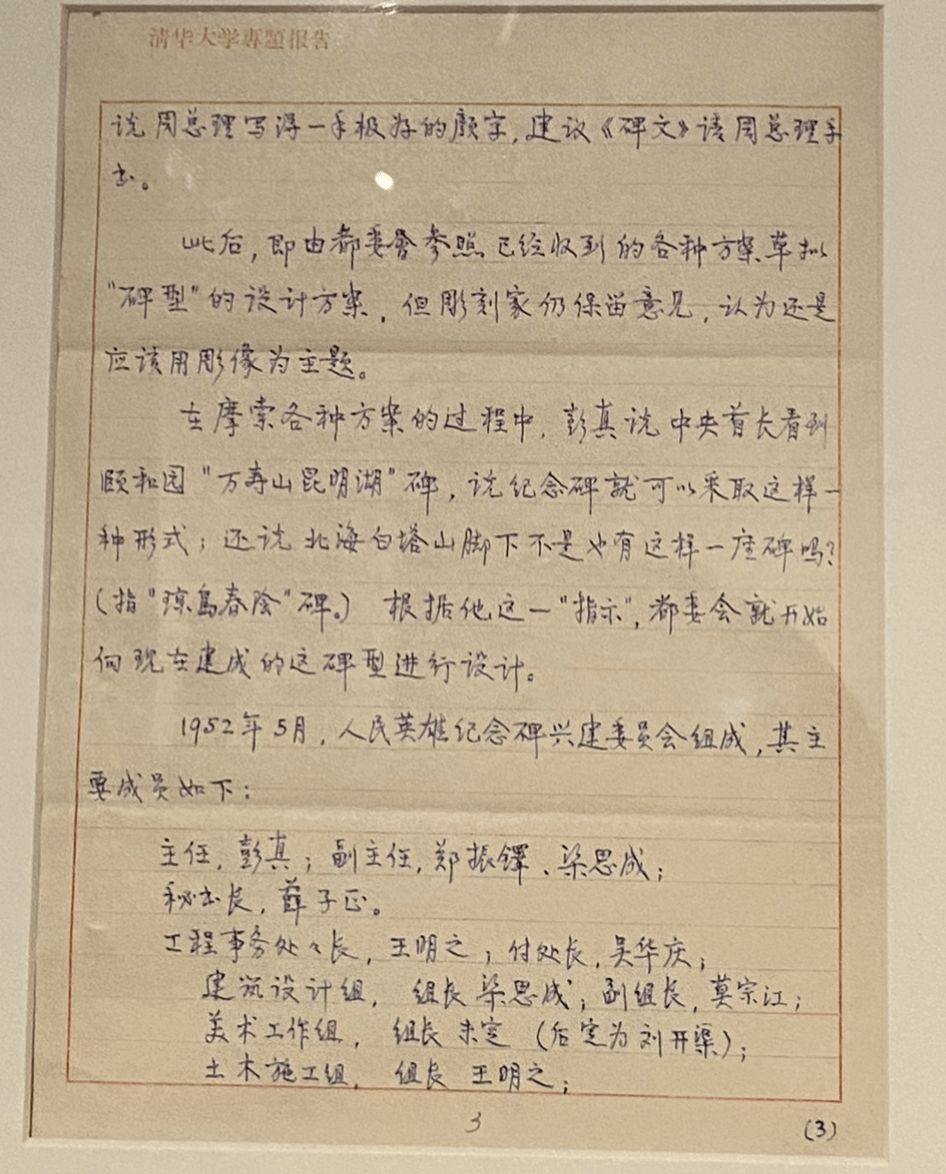 清华大学專題报告
说周总理写得一手极好的颜字,建议《碑文》请周总理手
书。
此后,即由都委會参照已经收到的各种方案草拟
“碑型”的设计方案,但彫刻家仍保留意见,认为还是
应该用彫像为主题。
在摩索各种方案的过程中,彭真说中央首长看到
颐和园“万寿山昆明湖”碑,说纪念碑就可以采取这样一
种形式;还说北海白塔山脚下不是也有这样一座碑吗?
(指“琼岛春阴”碑。) 根据他这一“指示”,都委会就开始
向现在建成的这碑型进行设计。
1952年5月,人民英雄纪念碑兴建委员会组成,其主
要成员如下:
主任,彭真;副主任,郑振铎、梁思成;
秘书长,薛子正。
工程事务处々长,王明之;付处长,吴华庆;
建筑设计组, 组长 梁思成;副组长,莫宗江;
美术工作组, 组长 未定 (后定为刘开渠);
土木施工组, 组长 王明之;
3
(3)